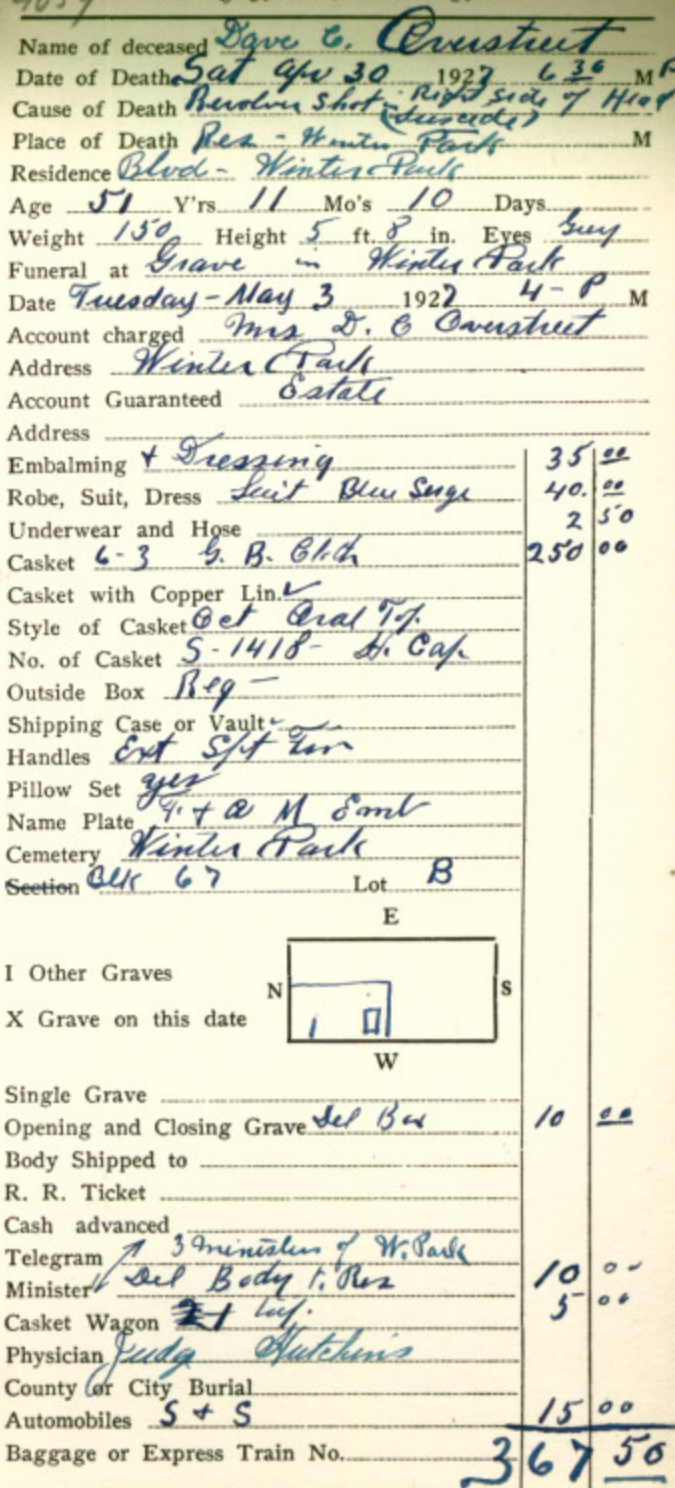 Name of deceased Dave C. Overstreet
Date of Death Sat Apr 30 1927 6 30 M P
Cause of Death Revolver Shot - Right Side of Head
(Suicide)
Place of Death Res - Winter Park M
Residence Blvd - Winter Park
Age 51 Y'rs 11 Mo's 10 Days
Weight 150 Height 5 ft. 8 in. Eyes Grey
Funeral at Grave in Winter Park
Date Tuesday - May 3 1927 4 - P M
Account charged Mrs D. C Overstreet
Address Winter Park
Account Guaranteed Estate
Address
Embalming + Dressing 35 00
Robe, Suit, Dress Suit Blue Serge 40. 00
Underwear and Hose 2 50
Casket 6-3 G. B. Cloth 250 00
Casket with Copper Lin.
Style of Casket Oct Oval Top.
No. of Casket S-1418- H. Cap.
Outside Box Reg -
Shipping Case or Vault
Handles Ext
Pillow Set yes
Name Plate F. + A M Eml
Cemetery Winter Park
Section Blk 67 Lot B
E
I Other Graves
N S
X Grave on this date
W
Single Grave
Opening and Closing Grave Del Box 10 00
Body Shipped to
R. R. Ticket
Cash advanced
Telegram 3 Ministers of W. Park
Minister Del Body to Res 10 00
Casket Wagon 5 00
Physician Judg Hutchins
County or City Burial
Automobiles S + S 15 00
Baggage or Express Train No. 367 50